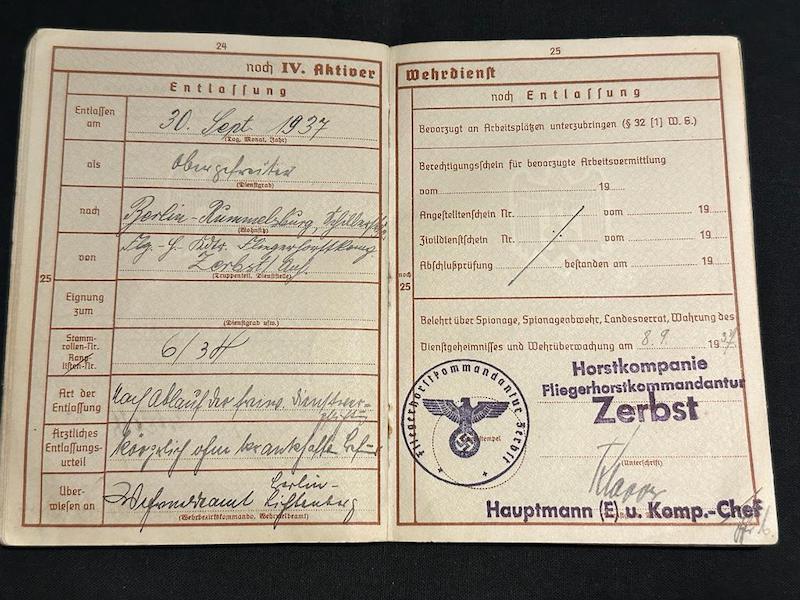 24
noch IV. Aktiver
Entlassung
Entlassen am
30. Sept. 1937
(Tag, Monat, Jahr)
als
Obergefreiter
(Dienstgrad)
nach
Berlin-Rummelsburg,
(Wohnsitz)
von
Zerbst
(Truppenteil, Dienststelle)
25
Eignung zum
(Dienstgrad usw.)
Stamm-
rollen-Nr.
Rang-
listen-Nr.
6/34
Art der
Entlassung
Nach Ablauf der
Ärztliches
Entlassungs-
urteil
Über-
wiesen an
Wehrmeldeamt Berlin-
Lichtenberg
(Wehrbezirkskommando, Wehrmeldeamt)
25
Wehrdienst
noch Entlassung
Bevorzugt an Arbeitsplätzen unterzubringen (§ 32 [1] W. G.)
Berechtigungsschein für bevorzugte Arbeitsvermittlung
vom 19
Angestelltenschein Nr. vom 19
Zivildienstschein Nr. vom 19
Abschlußprüfung bestanden am 19
noch
25
Belehrt über Spionage, Spionageabwehr, Landesverrat, Wahrung des
Dienstgeheimnisses und Wehrüberwachung am 8. 9. 1937
Horstkompanie
Fliegerhorstkommandantur
Zerbst
Fliegerhorstkommandantur Zerbst
(Unterschrift)
Hauptmann (E) u. Komp.-Chef